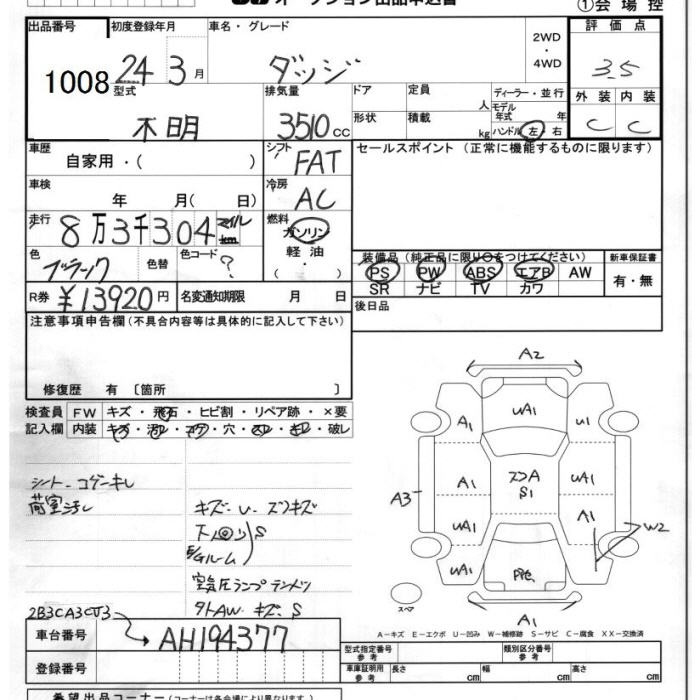 ①会場控
出品番号
1008
初度登録年月
24 3月
車名・グレード
ダッジ
2WD
・
4WD
評価点
3.5
外装 内装
C C
型式
不明
排気量
3510 CC
ドア
定員
人
形状
積載
kg
ディーラー・並行
モデル年式 年
ハンドル 左・右
車歴
自家用・( )
シフト
FAT
セールスポイント (正常に機能するものに限ります)
車検
年 月( 日)
冷房
AC
走行
8万3千304 マイル km
燃料
ガソリン
軽油・
( )
色
ブラック
色替
色コード
?
装備品(純正品に限り○をつけてください)
PS PW ABS エアB AW
SR ナビ TV カワ
新車保証書
有・無
R券 ¥13920円
名変通知期限 月 日
後日品
注意事項申告欄(不具合内容等は具体的に記入して下さい)
修復歴 有 〔箇所 〕
検査員記入欄
FW キズ・飛石・ヒビ割・リペア跡・×要
内装 キズ・汚レ・コゲ・穴・スレ・キレ・破レ
シート・コゲ・キレ
荷室汚レ
キズ・U・スリキズ
下廻り S
E/Gルーム
空気圧ランプテントウ
タトAW キズ・S
A2
UA1
A1
U1
A1
UA1
A3
UA1
A1
W2
UA1
A1
スペア
A-キズ E-エクボ U-凹み W-補修跡 S-サビ C-腐食 XX-交換済
2B3CA3CJ3
車台番号
AH194377
登録番号
型式指定番号
類別区分番号
車庫証明用参考
長さ cm 幅 cm 高さ cm
希望出品コーナー(コーナーは各会場により異なります。)